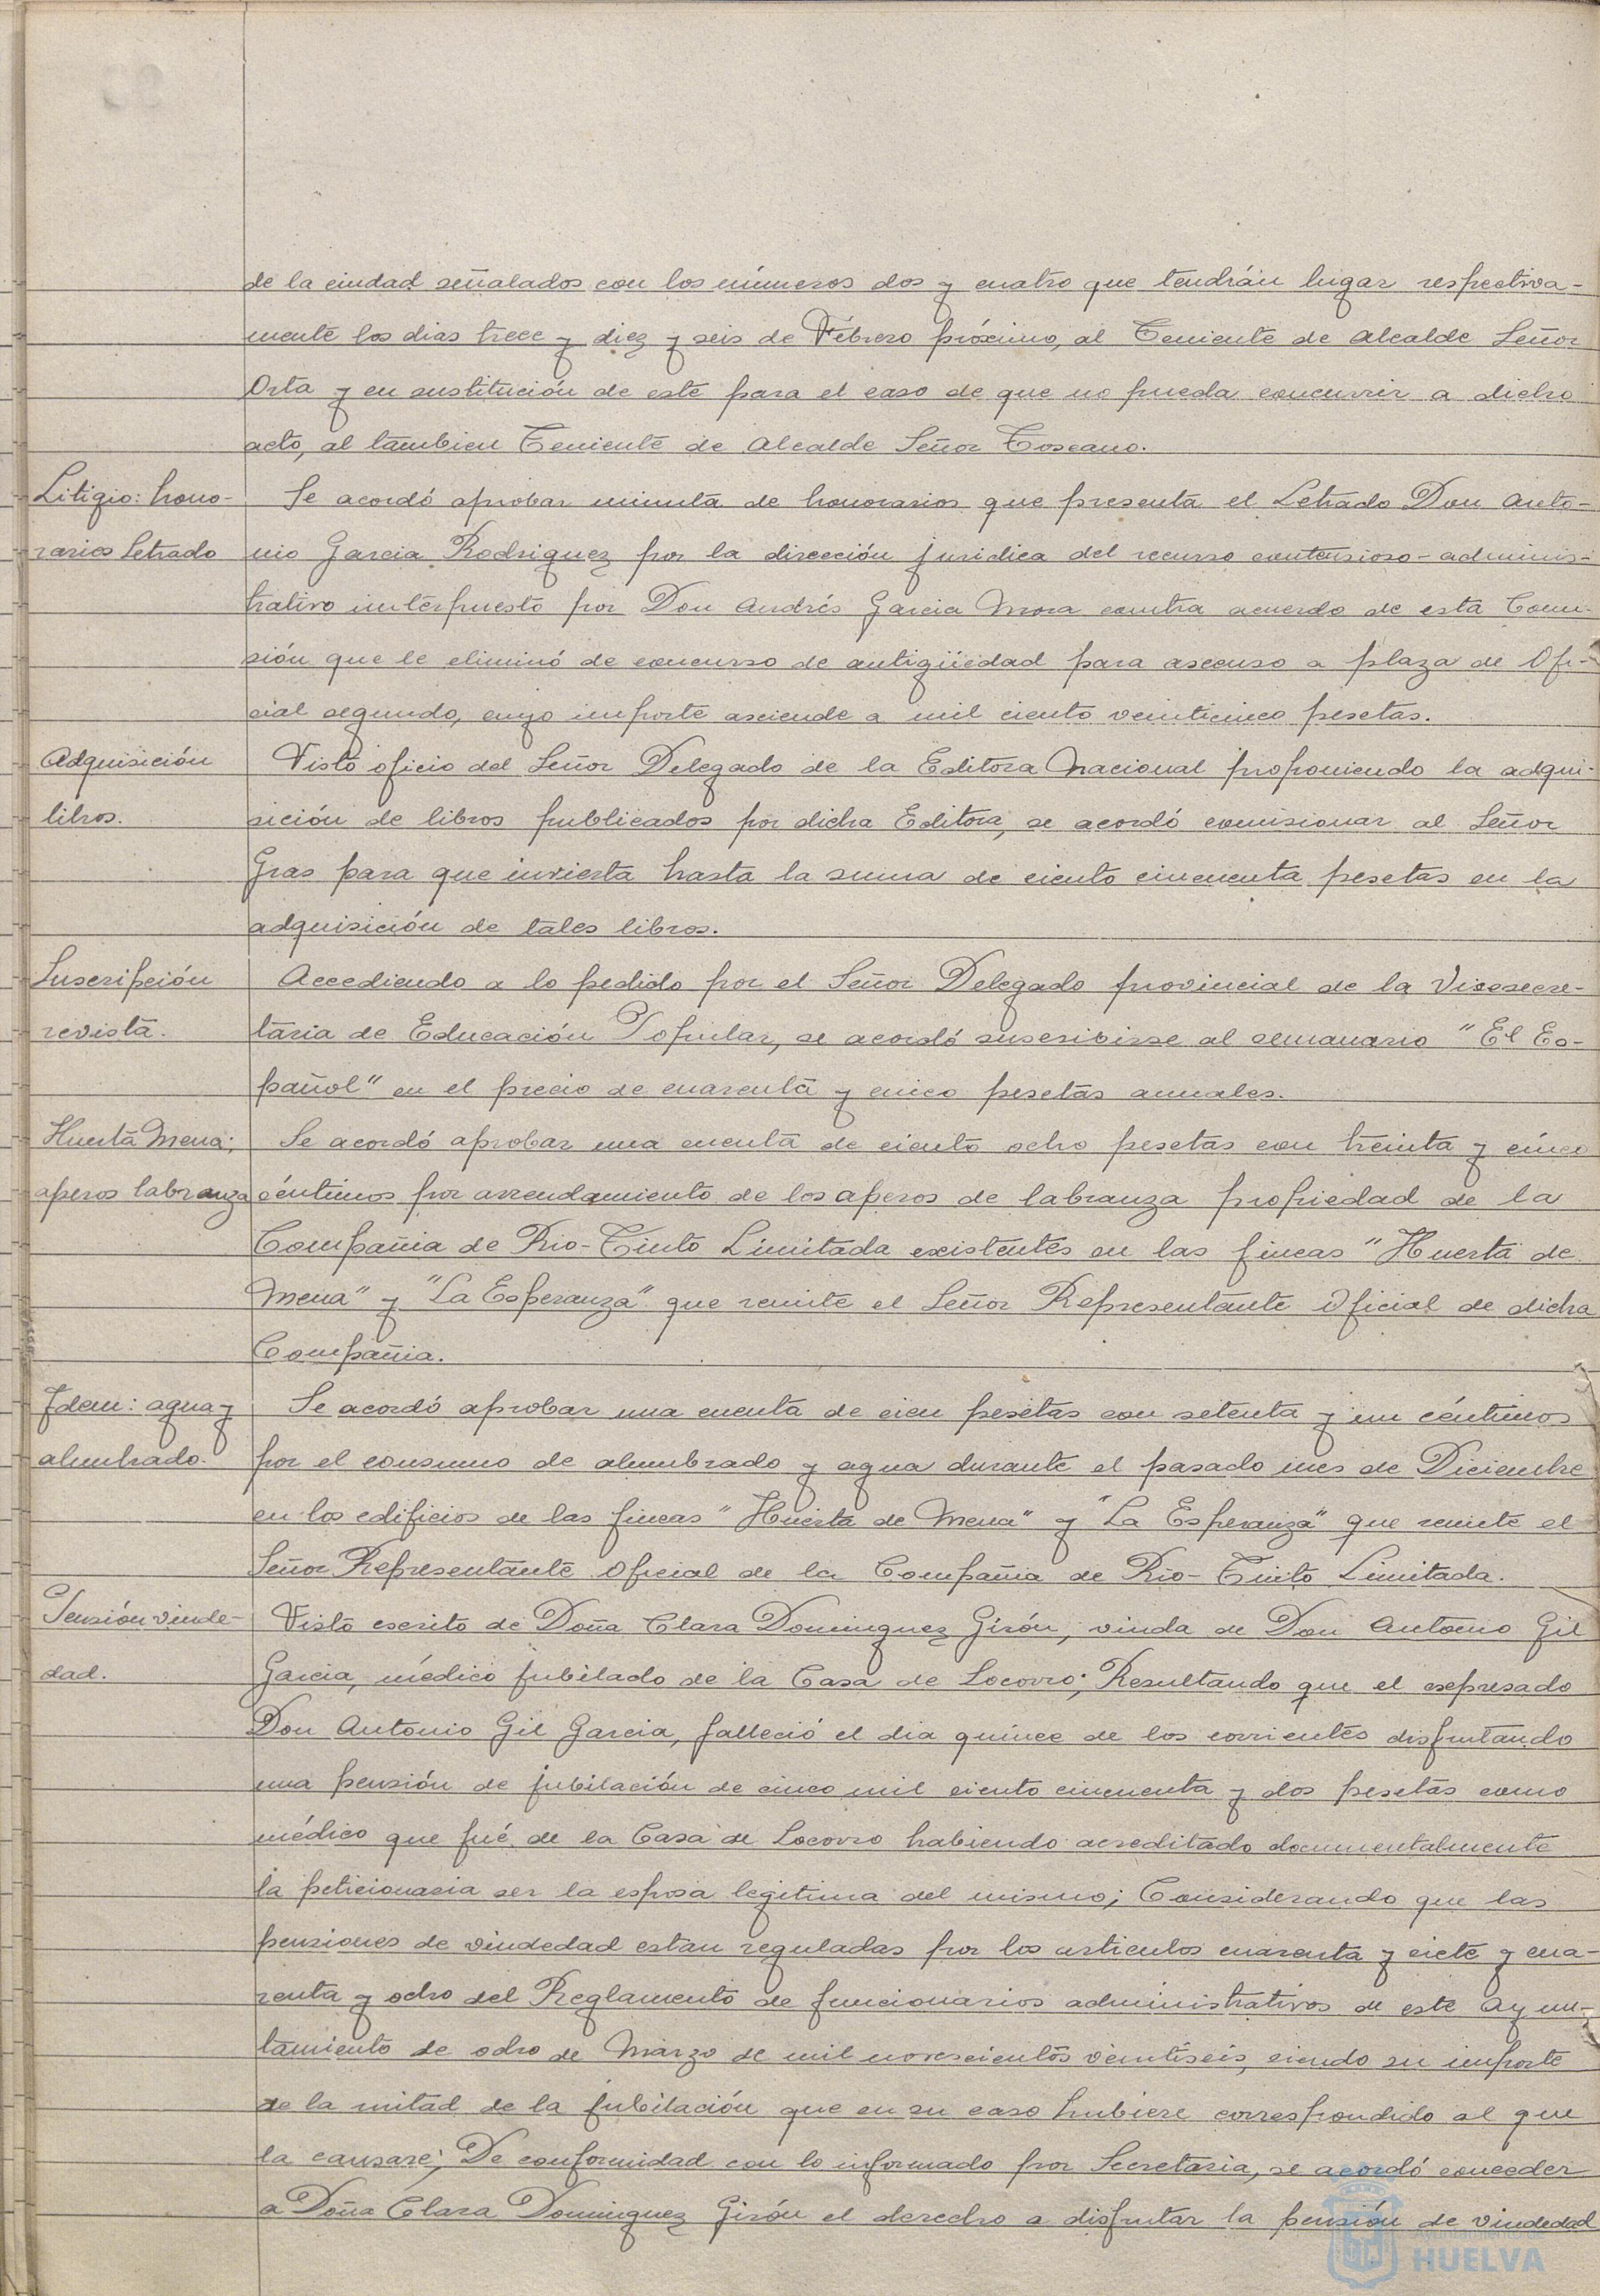 de la ciudad señalados con los números dos y cuatro que tendrán lugar respectiva-
mente los dias trece y diez y seis de Febrero próximo, al Teniente de Alcalde Señor
Orta y en sustitución de este para el caso de que no pueda concurrir a dicho
acto, al tambien Teniente de Alcalde Señor Toscano.
Litigio: hono- Se acordó aprobar minuta de honorarios que presenta el Letrado Don Anto-
rarios Letrado nio Garcia Rodriguez por la dirección juridica del recurso contensioso-adminis-
trativo interpuesto por Don Andrés Garcia Mora contra acuerdo de esta Comi-
sión que le eliminó de concurso de antigüedad para ascenso a plaza de Ofi-
cial segundo, cuyo importe asciende a mil ciento veinticinco pesetas.
Adquisición Visto oficio del Señor Delegado de la Editora Nacional proponiendo la adqui-
libros. sición de libros publicados por dicha Editora, se acordó comisionar al Señor
Gras para que invierta hasta la suma de ciento cincuenta pesetas en la
adquisición de tales libros.
Suscripción Accediendo a lo pedido por el Señor Delegado provincial de la Vicesecre-
revista. taria de Educación Popular, se acordó suscribirse al semanario "El Es-
pañol" en el precio de cuarenta y cinco pesetas anuales.
Huerta Mena; Se acordó aprobar una cuenta de ciento ocho pesetas con treinta y cinco
aperos labranza céntimos por arrendamiento de los aperos de labranza propiedad de la
Compañia de Rio-Tinto Limitada existentes en las fincas "Huerta de
Mena" y "La Esperanza" que remite el Señor Representante Oficial de dicha
Compañia.
Idem: agua y Se acordó aprobar una cuenta de cien pesetas con setenta y un céntimos
alumbrado. por el consumo de alumbrado y agua durante el pasado mes de Diciembre
en los edificios de las fincas "Huerta de Mena" y "La Esperanza" que remite el
Señor Representante Oficial de la Compañia de Rio-Tinto Limitada.
Pensión viude- Visto escrito de Doña Clara Dominguez Girón, viuda de Don Antonio Gil
dad. Garcia, médico jubilado de la Casa de Socorro; Resultando que el expresado
Don Antonio Gil Garcia, falleció el dia quince de los corrientes disfrutando
una pensión de jubilación de cinco mil ciento cincuenta y dos pesetas como
médico que fué de la Casa de Socorro habiendo acreditado documentalmente
la peticionaria ser la esposa legitima del mismo; Considerando que las
pensiones de viudedad estan reguladas por los articulos cuarenta y siete y cua-
renta y ocho del Reglamento de funcionarios administrativos de este Ayun-
tamiento de ocho de Marzo de mil novescientos veintiseis, siendo su importe
de la mitad de la jubilación que en su caso hubiere correspondido al que
la causare; De conformidad con lo informado por Secretaria, se acordó conceder
a Doña Clara Dominguez Girón el derecho a disfrutar la pensión de viudedad
HUELVA